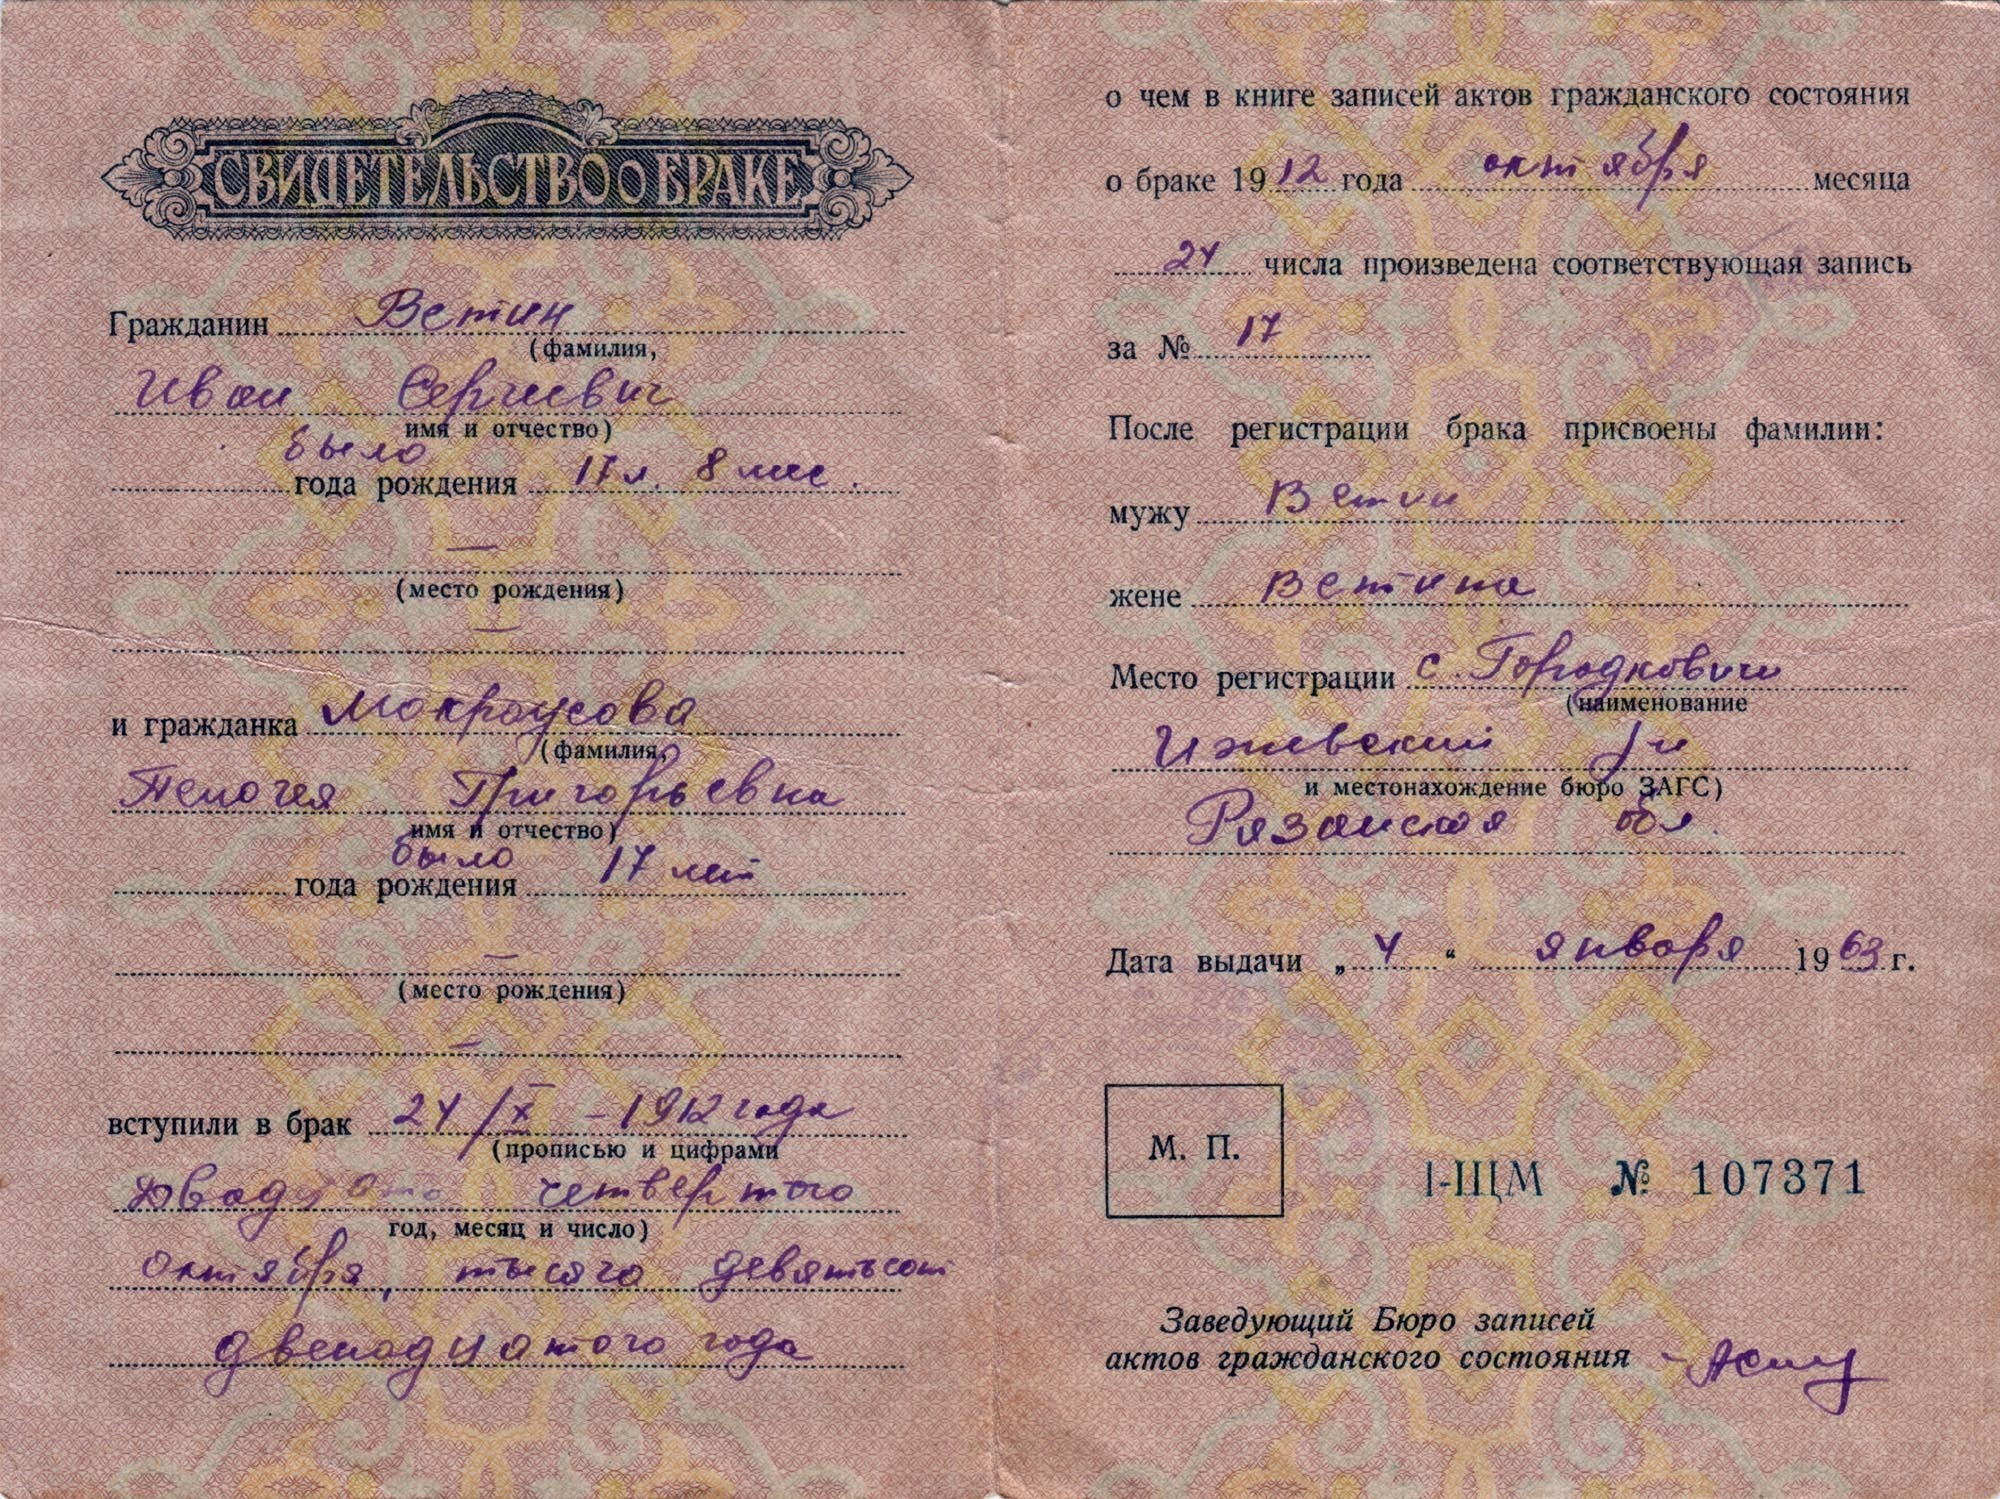 СВИДЕТЕЛЬСТВО о БРАКЕ
Гражданин Ветин
(фамилия,
Иван Сергеевич
имя и отчество)
было
года рождения 17 л. 8 мес.
—
(место рождения)
—
и гражданка Мокроусова
(фамилия,
Пелагея Григорьевна
имя и отчество)
было
года рождения 17 лет
—
(место рождения)
—
вступили в брак 24/X – 1912 года
(прописью и цифрами
Двадцато четвертого
год, месяц и число)
октября, тысяча девятьсот
двенадцатого года
о чем в книге записей актов гражданского состояния
о браке 1912 года октября месяца
24 числа произведена соответствующая запись
за № 17
После регистрации брака присвоены фамилии:
мужу Ветин
жене Ветина
Место регистрации с. Городковичи
(наименование
Ижевский р-н
и местонахождение бюро ЗАГС)
Рязанская обл.
Дата выдачи „4“ января 1963 г.
М. П.
I-ЩМ № 107371
Заведующий Бюро записей
актов гражданского состояния